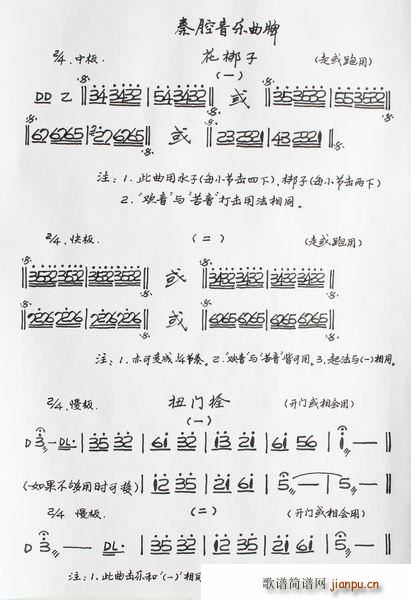 秦腔音乐曲牌
2/4. 中板. 花梆子 (走或跑用)
(一)
DD 乙 34 3432 | 54 3432 或 35 3532 | 55 3532
62 6265 | 22 6265 或 23 2321 | 43 2321
注: 1. 此曲用水子(每小节击四下), 梆子(每小节击两下)
2. "欢音"与"苦音"打击用法相同。
2/4. 快板. (二) (走或跑用)
3532 3532 | 3532 3532 或 3432 3432 | 3432 3432
2226 2226 | 2226 2226 或 6265 6265 | 6265 6265
注: 1. 亦可变成 1/4 节奏。2. "欢音"与"苦音"皆可用。3. 起法与(一)相同。
2/4. 慢板. 扭门栓 (开门或相会用)
(一)
D 3 — DL· | 35 32 | 61 32 | 13 21 | 61 56 | 1 — |
(如果不够用时可接) | 12 35 | 21 61 | 5 — | 5 — |
2/4 慢板 (二) (开门或相会用)
D 3 — DL· | 35 32 | 12 35 | 21 61 | 5 — |
注: 1. 此曲击乐和"(一)"相
歌谱简谱网
jianpu.cn